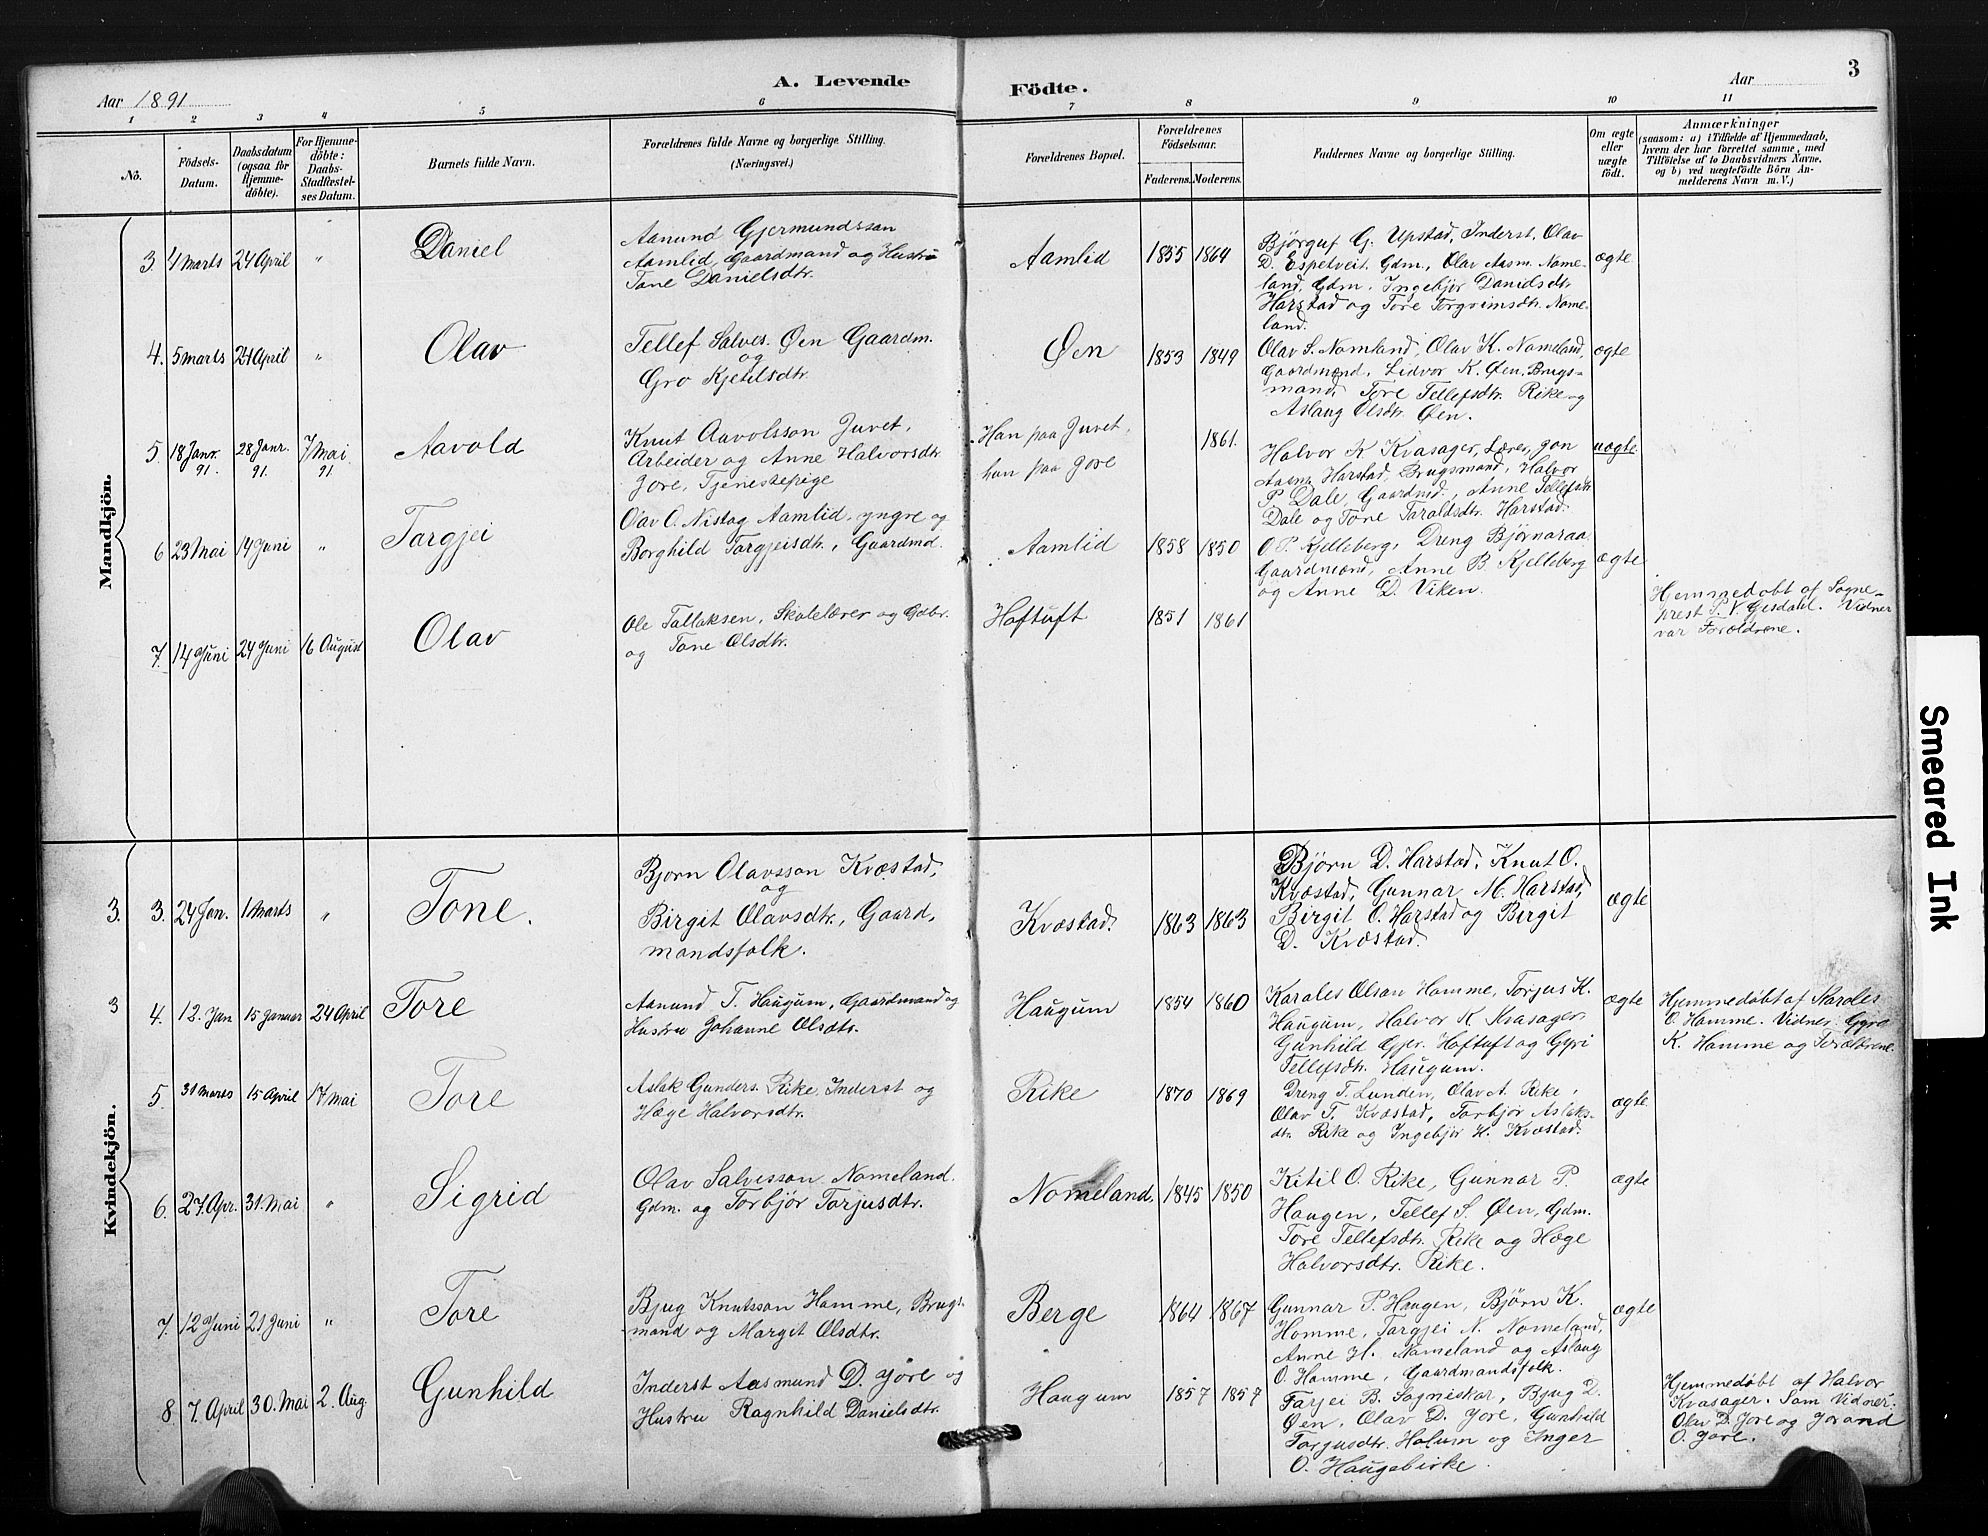 3
A. Levende Födte.
Aar 1891
Aar
1 2 3 4 5 6 7 8 9 10 11
Nô.
Födsels-
Datum.
Daabsdatum
(ogsaa for
Hjemme-
döbte).
For Hjemme-
döbte:
Daabs-
Stadfæstel-
ses Datum.
Barnets fulde Navn.
Forældrenes fulde Navne og borgerlige Stilling.
(Næringsvei.)
Forældrenes Bopæl.
Forældrenes
Födselsaar.
Faderens. Moderens.
Faddernes Navne og borgerlige Stilling.
Om ægte
eller
uægte
födt.
Anmærkninger
(saasom: a) i Tilfælde af Hjemmedaab,
hvem der har forrettet samme, med
Tilföielse af to Daabsvidners Navne,
og b) ved uægtefödte Börn An-
melderens Navn m. V.)
Mandkjön.
3. 4 Marts 24 April " Daniel
Aanund Gjermundsson
Aamlid, Gaardmand og Hustru
Tone Danielsdtr.
Aamlid 1855 1864
Bjørguf G. Upstad, Inderst, Olav
D. Espetveit Gdm., Olav Aasm. Nome-
land, Gdm. Ingebjør Danielsdtr.
Harstad og Tore Torgrimsdtr. Nome-
land.
ægte
4. 5 Marts 24 April " Olav
Tellef Salves. Øen Gaardm.
og
Gro Kjetilsdtr.
Øen 1853 1849
Olav S. Nomland, Olav K. Nomeland,
Gaardmænd, Lidvor K. Øen, Brugs-
mand, Tore Tellefsdtr. Rike og
Aslaug Olsdtr. Øen.
ægte
5. 18 Janr. 91. 28 Janr. 91. 7 Mai 91 Aavold
Knut Aavolsson Juvet,
Arbeider og Anne Halvorsdtr.
Jore, Tjenestepige
Han paa Juvet,
hun paa Jore
1861.
Halvor K. Kvasager, Lærer, Jon
Aasm. Harstad, Brugsmand, Halvor
P. Dale, Gaardmd., Anne Tellefsdtr.
Dale og Tone Taraldsdtr. Harstad.
uægte
6 23 Mai 14 Juni " Targjei
Olav O. Nistog Aamlid, yngre og
Borghild Targjeisdtr., Gaardmd.
Aamlid 1858 1850
O. P. Kjelleberg, Dreng Bjørnaraa
Gaardmænd, Anne B. Kjelleberg
og Anne D. Viken.
ægte
7. 14 Juni 24 Juni 16 August Olav
Ole Tallaksen, Skolelærer og Gdbr.
og Tone Olsdtr.
Hoftuft 1851 1861
Hjemmedøbt af Sogne-
prest P. V. Gjesdahl. Vidner
var Forældrene.
Kvindekjön.
3. 3. 24 Jan. 1 Marts " Tone.
Bjorn Olavsson Kvæstad,
og
Birgit Olavsdtr., Gaard,
mandsfolk.
Kvæstad. 1863 1863
Bjørn D. Harstad, Knut O.
Kvæstad, Gunnar M. Harstad,
Birgit O. Harstad og Birgit
D. Kvæstad.
ægte
3 4. 12. Jan 15 Januar 24 April Tore
Aanund T. Haugum, Gaardmand og
Hustru Johanne Olsdtr.
Haugum 1854 1860
Karoles Olsen Homme, Torjus K.
Haugum, Halvor K. Kvasager,
Gunhild Gjer. Hoftuft og Gyri
Tellefsdtr. Haugum.
ægte
Hjemmedøbt af Karoles
O. Homme. Vidner: Gyro
K. Homme og Forældrene.
5. 31 Marts 15 April 17 Mai Tore
Aslak Gunders. Rike, Inderst og
Hæge Halvorsdtr.
Rike 1870 1869
Dreng T. Lunden, Olav A. Rike,
Olav T. Kvæstad, Torbjør Aslaks-
dtr. Rike og Ingebjør H. Kvæstad.
ægte
6. 27. Apr. 31. Mai " Sigrid
Olav Salvesson Nomeland.
Gdm. og Torbjør Torjusdtr.
Nomeland. 1845 1850
Kitil O. Rike, Gunnar P.
Haugen, Tellef S. Øen, Gdm.
Tore Tellefsdtr. Rike og Hæge
Halvorsdtr. Rike.
ægte
7. 12 Juni 21 Juni " Tore
Bjug Knutsson Homme, Brugs-
mand og Margit Olsdtr.
Berge 1864 1867
Gunnar P. Haugen, Bjørn K.
Homme, Targjei N. Nomeland,
Anne H. Nomeland og Aslaug
O. Homme, Gaardmandsfolk.
ægte
8 7. April 30. Mai 2. Aug. Gunhild
Inderst Aasmund D. Jore og
Hustru Ragnhild Danielsdtr.
Haugum 1857 1857
Tarjei B. Sagneskar, Bjug D.
Øen, Olav D. Jore, Gunhild
Torjusdtr. Holum og Inger
O. Haugebirke.
Hjemmedøbt af Halvor
Kvasager. Som Vidner:
Olav D. Jore og Jorand
O. Jore.
Smeared Ink